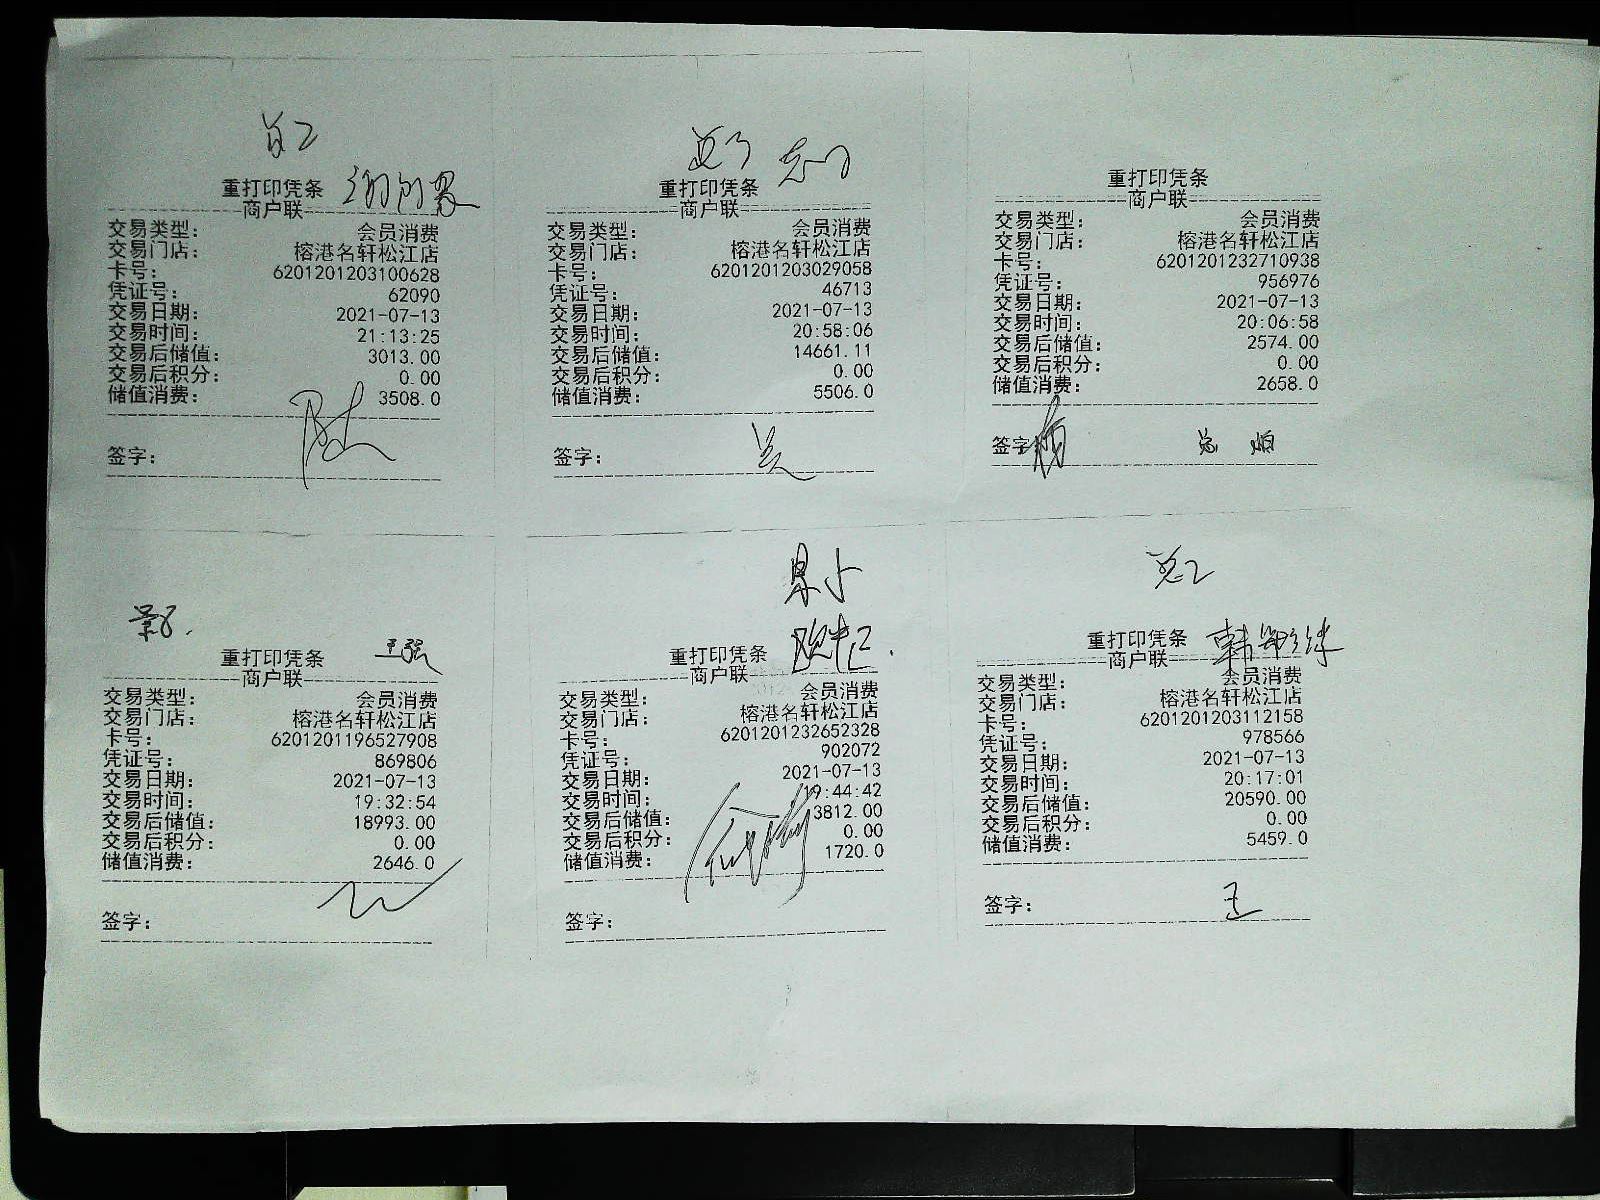 重打印凭条
商户联
交易类型： 会员消费
交易门店： 榕港名轩松江店
卡号： 6201201203100628
凭证号： 62090
交易日期： 2021-07-13
交易时间： 21:13:25
交易后储值： 3013.00
交易后积分： 0.00
储值消费： 3508.0
签字：
重打印凭条
商户联
交易类型： 会员消费
交易门店： 榕港名轩松江店
卡号： 6201201203029058
凭证号： 46713
交易日期： 2021-07-13
交易时间： 20:58:06
交易后储值： 14661.11
交易后积分： 0.00
储值消费： 5506.0
签字： 吴
重打印凭条
商户联
交易类型： 会员消费
交易门店： 榕港名轩松江店
卡号： 6201201232710938
凭证号： 956976
交易日期： 2021-07-13
交易时间： 20:06:58
交易后储值： 2574.00
交易后积分： 0.00
储值消费： 2658.0
签字：
王强
重打印凭条
商户联
交易类型： 会员消费
交易门店： 榕港名轩松江店
卡号： 6201201196527908
凭证号： 869806
交易日期： 2021-07-13
交易时间： 19:32:54
交易后储值： 18993.00
交易后积分： 0.00
储值消费： 2646.0
签字：
重打印凭条
商户联
交易类型： 会员消费
交易门店： 榕港名轩松江店
卡号： 6201201232652328
凭证号： 902072
交易日期： 2021-07-13
交易时间： 19:44:42
交易后储值： 3812.00
交易后积分： 0.00
储值消费： 1720.0
签字：
重打印凭条
商户联
交易类型： 会员消费
交易门店： 榕港名轩松江店
卡号： 6201201203112158
凭证号： 978566
交易日期： 2021-07-13
交易时间： 20:17:01
交易后储值： 20590.00
交易后积分： 0.00
储值消费： 5459.0
签字： 王